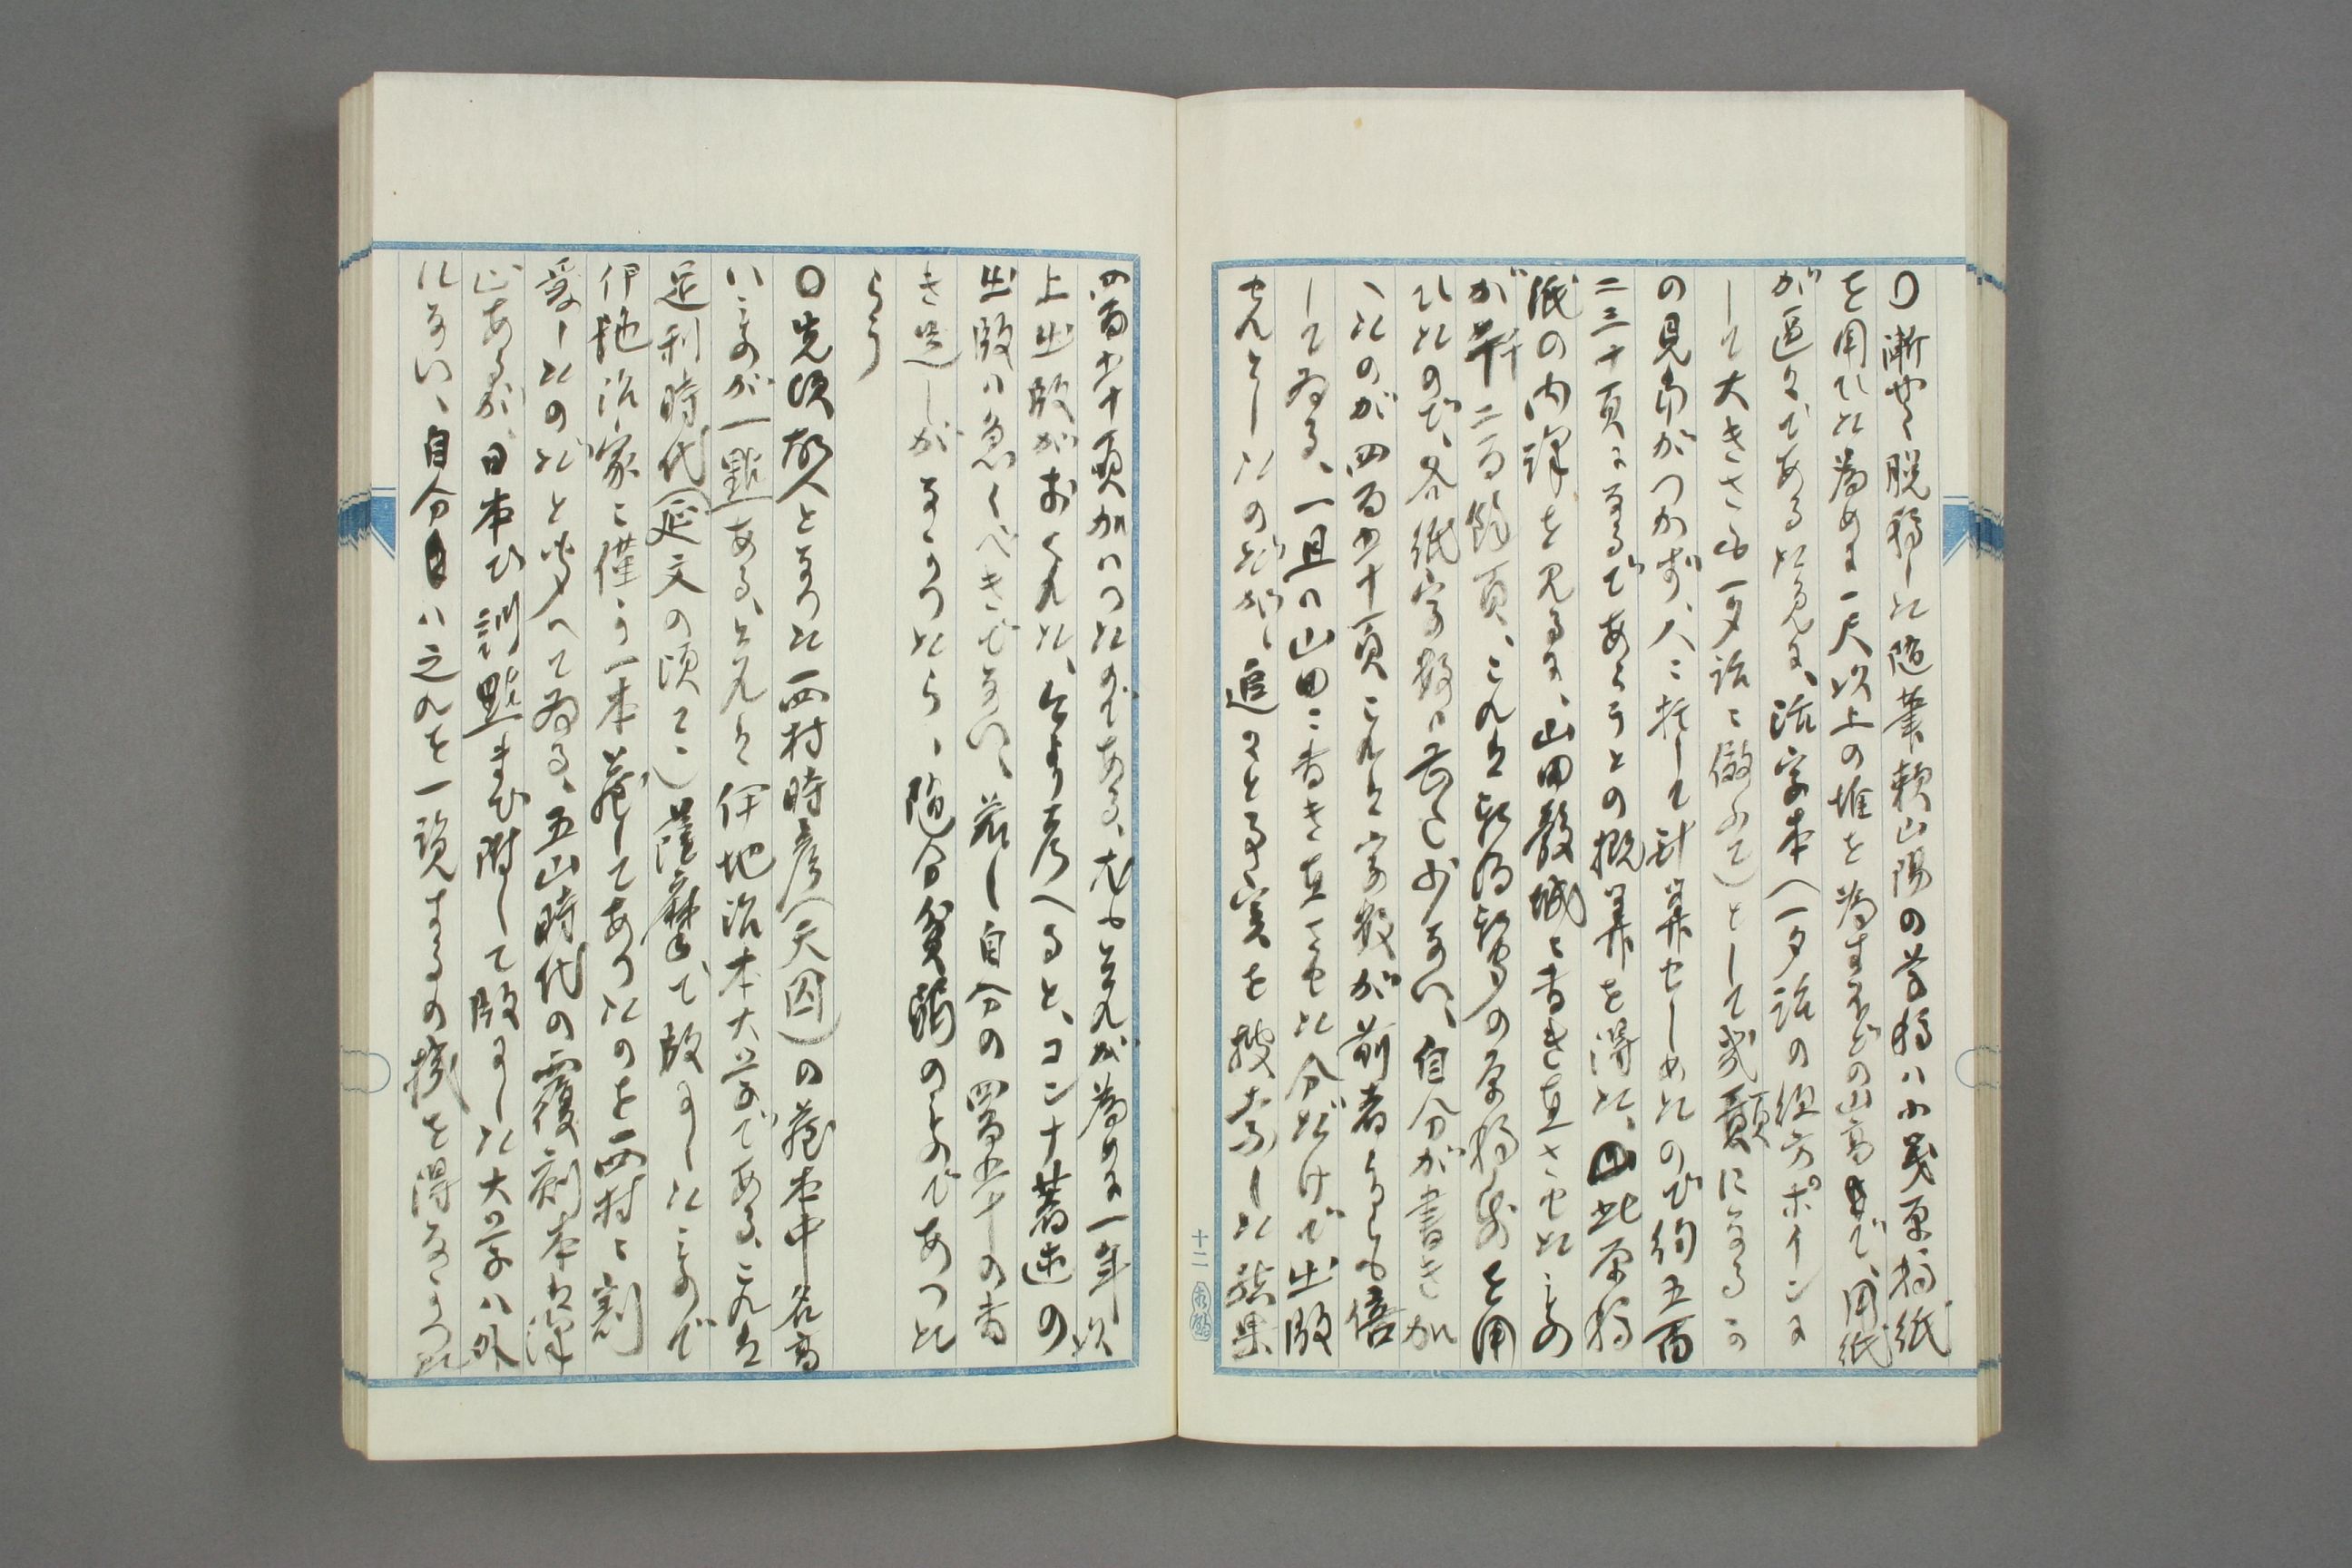 〇漸やく脱稿した随筆頼山陽の草稿ハ小美原稿紙
を用ひた為めに一尺以上の堆を為すほどの山高で、用紙
が區々である故えに、活字本へ一夕話の組方ポイントに
して大きさも一夕話に倣ふて)として幾頁になるか
の見当がつかず、人に托して計算せしめたので約五百
二三十頁になるであらうとの概算を得た、此原稿
紙の内譯を見るに、山田に書き直させたもの
が弐百頁、これは新聞の原稿紙を用
ひたので、各紙字数は少ない、自分が書き加
へたのが四百五十頁これは字数が前者よりも倍
してゐる、一旦ハ山田に書き直させた分だけで出版
せんとしたのだが、追々と事実を捜索した結果
四百五十頁加ハつたのである、尤もこれが為めに一年以
上出版がおくれた、今より考へると、コンナ著述の
出版ハ急ぐべきでない、若し自分の四百五十の書
き足しがなかつたら、随分貧弱のものであつた
らう
〇先頃故人となつた西村時彦(天囚)の蔵本中名高
いものが一點ある、これは伊地治本大学である、これは
足利時代(延文の頃)薩摩で版にしたもので
伊地治家に僅か一本蔵してあつたのを西村に割
愛したのだと聞てゐる、五山時代の覆刻本は澤
山あるが、日本ひ訓點まで附して版にした大学ハ外
にない、自分ハ之れを一覧するの機を得なかつた
十二